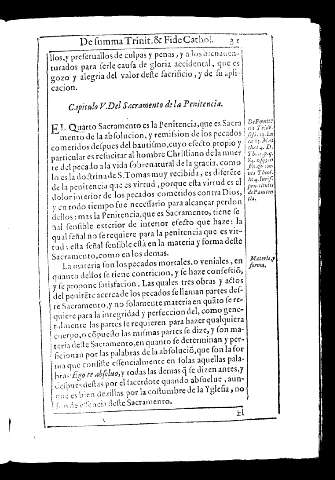 De summa Trinit. & Fide Cathol. 21
llos, y preseruallos de culpas y penas, y a los bienauen-
turados para serle causa de gloria accidental, que es
gozo y alegria del valor deste sacrificio, y de su apli-
cacion.
Capitulo V. Del Sacramento de la Penitencia.
EL Quarto Sacramento es la Penitencia, que es Sacra
mento de la absolucion, y remission de los pecados
cometidos despues del bautismo, cuyo efecto propio y
particular es resucitar al hombre Christiano de la muer
te del pecado a la vida sobrenatural de la gracia, como
lo es la doctrina de S. Tomas muy recibida, es diferēte
de la penitencia que es virtud, porque esta virtud es el
dolor interior de los pecados cometidos contra Dios,
y en todo tiempo fue necessario para alcançar perdon
dellos: mas la Penitencia, que es Sacramento, tiene se
ñal sensible exterior de interior efecto que haze: la
qual señal no se requiere para la penitencia que es vir-
tud: esta señal sensible está en la materia y forma deste
Sacramento, como en los demas.
La materia son los pecados mortales, o veniales, en
quanto dellos se tiene contricion, y se haze confessiō,
y se propone satisfacion. Las quales tres obras y actos
del penitēte acerca de los pecados se llaman partes des-
te Sacramento, y no solamente materia en quāto se re-
quiere para la integridad y perfeccion del, como gene-
ralmente las partes se requieren para hazer qualquiera
cuerpo, o cōpuesto de las mismas partes se dize, y son ma-
teria deste Sacramento, en quanto se determinan y per-
ficionan por las palabras de la absoluciō, que son la for
ma que consiste essencialmente en solas aquellas pala-
bras: Ego te absoluo, y todas las demas q̄ se dizen antes, y
despues destas por el sacerdote quando absuelue, aun-
que es bien dezillas por la costumbre de la Yglesia, no
son de essēcia deste Sacramento.
El
De Pœnitē
Materia, y
forma.